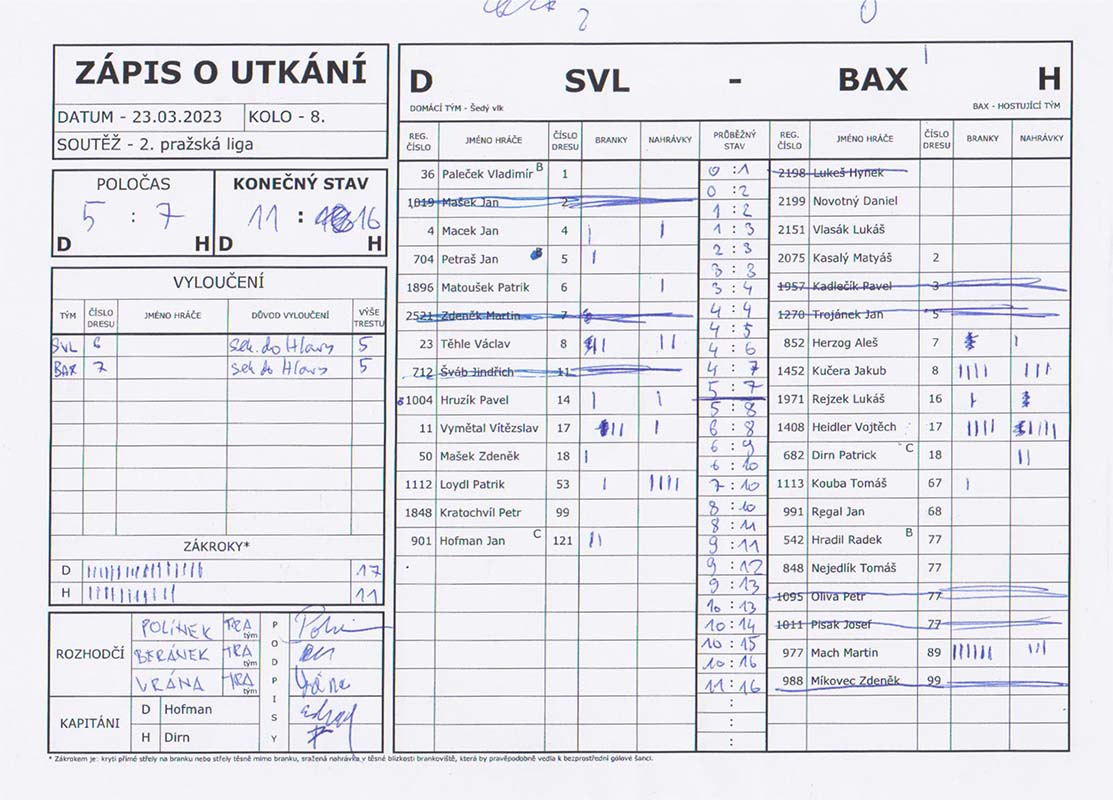 ZÁPIS O UTKÁNÍ
DATUM - 23.03.2023 KOLO - 8.
SOUTĚŽ - 2. pražská liga
POLOČAS KONEČNÝ STAV
5 : 7 11 : 16
D H D H
VYLOUČENÍ
TÝM ČÍSLO DRESU JMÉNO HRÁČE DŮVOD VYLOUČENÍ VÝŠE TRESTU
SVL 6 sek. do Hlavy 5
BAX 7 sek do Hlavy 5
ZÁKROKY*
D 17
H 11
ROZHODČÍ
POLÍNEK TRA tým
BERÁNEK TRA tým
VRÁNA TRA tým
PODPISY
KAPITÁNI
D Hofman
H Dirn
D SVL - BAX H
DOMÁCÍ TÝM - Šedý vlk BAX - HOSTUJÍCÍ TÝM
REG. ČÍSLO JMÉNO HRÁČE ČÍSLO DRESU BRANKY NAHRÁVKY PRŮBĚŽNÝ STAV REG. ČÍSLO JMÉNO HRÁČE ČÍSLO DRESU BRANKY NAHRÁVKY
36 Paleček Vladimír B 1
1019 Mašek Jan 2
4 Macek Jan 4
704 Petraš Jan 5
1896 Matoušek Patrik 6
2521 Zdeněk Martin 7
23 Těhle Václav 8
712 Šváb Jindřich 11
1004 Hruzík Pavel 14
11 Vymětal Vítězslav 17
50 Mašek Zdeněk 18
1112 Loydl Patrik 53
1848 Kratochvíl Petr 99
901 Hofman Jan C 121
0 : 1
0 : 2
1 : 2
1 : 3
2 : 3
3 : 3
3 : 4
4 : 4
4 : 5
4 : 6
4 : 7
5 : 7
5 : 8
6 : 8
6 : 9
6 : 10
7 : 10
8 : 10
8 : 11
9 : 11
9 : 12
9 : 13
10 : 13
10 : 14
10 : 15
10 : 16
11 : 16
:
:
:
2198 Lukeš Hynek
2199 Novotný Daniel
2151 Vlasák Lukáš
2075 Kasalý Matyáš 2
1957 Kadlečík Pavel 3
1270 Trojánek Jan 5
852 Herzog Aleš 7
1452 Kučera Jakub 8
1971 Rejzek Lukáš 16
1408 Heidler Vojtěch 17
682 Dirn Patrick C 18
1113 Kouba Tomáš 67
991 Regal Jan 68
542 Hradil Radek B 77
848 Nejedlík Tomáš 77
1095 Oliva Petr 77
1011 Pisak Josef 77
977 Mach Martin 89
988 Míkovec Zdeněk 99
* Zákrokem je: krytí přímé střely na branku nebo střely těsně mimo branku, sražená nahrávka v těsné blízkosti brankoviště, která by pravěpodobně vedla k bezprostřední gólové šanci.